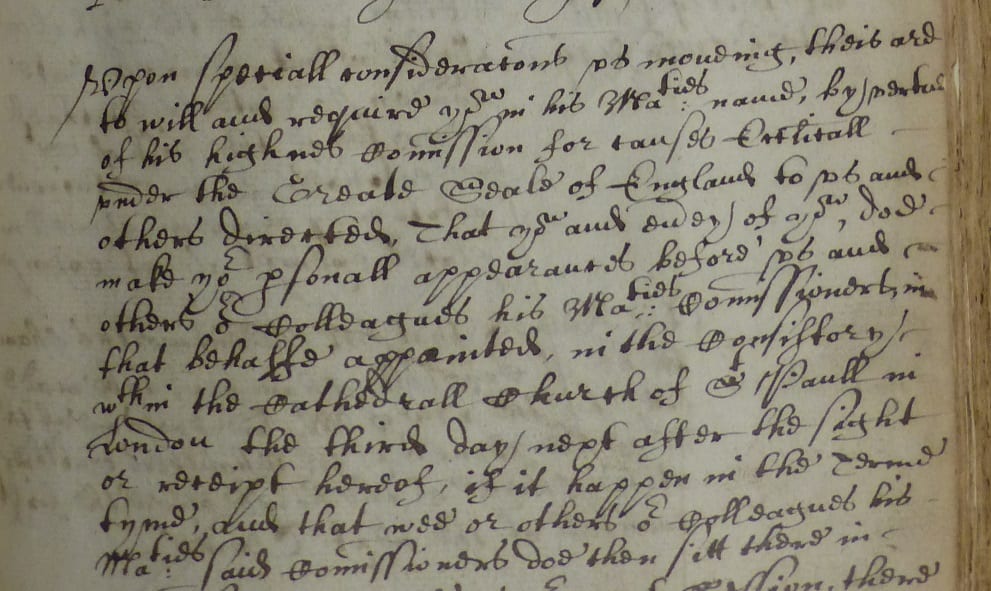 Vpon speciall consideracons vs moueing, theis are
to will and require yow in his Maties: name, by vertue
of his highnes Comission for causes Ecclicall
vnder the Greate Seale of England to vs and
others directed, That yow and euery of yow, doe
make yor psonall appearances before vs and
others or Colleagues his Maties: Comissioners, in
that behalfe appointed, in the Consistory
wthin the Cathedrall Church of St Paull in
London the third day next after the sight
or receipt hereof, if it happen in the Terme
tyme, and that wee or others or Colleagues his
Maties: said Comissioners doe then sitt there in
there